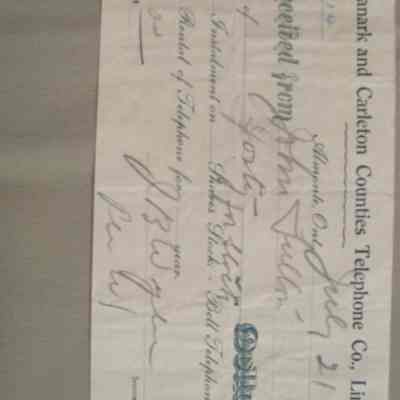 anark and Carleton Counties Telephone Co., Lim
Almonte, Ont., July 21
19
eceived from John Fulton
of Forty
Dolla
Instalment on Shares Stock. Bell Telephon
on stock
Rental of Telephone for year
J B Wylie
Per W